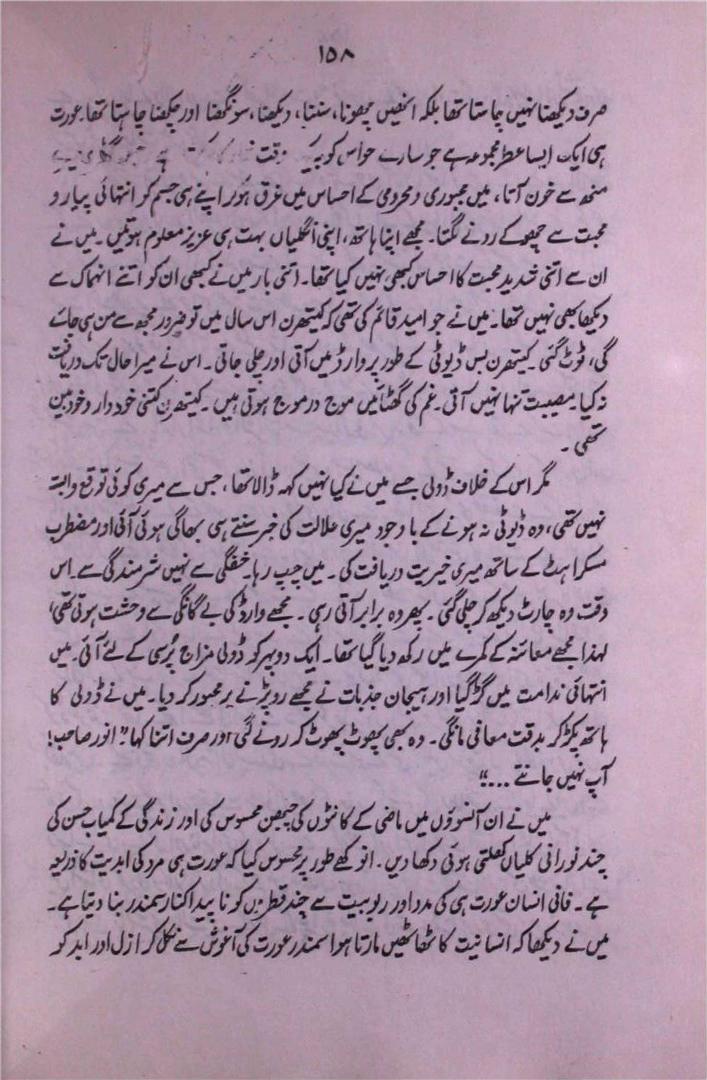 ۱۵۸
صرف دیکھنا نہیں چاہتا تھا بلکہ انھیں چھونا، سننا، دیکھنا، سونگھنا اور چکھنا چاہتا تھا۔ عورت
ہی ایک ایسا عطر مجموعہ ہے جو سارے حواس کو بیک وقت
منھ سے خون آتا، میں مجبوری و محرومی کے احساس میں غرق ہو کر اپنے ہی جسم کو انتہائی پیار و
محبت سے چھو کے رونے لگتا۔ مجھے اپنا ہاتھ، اپنی انگلیاں بہت ہی عزیز معلوم ہوتیں۔ میں نے
ان سے اتنی شدید محبت کا احساس کبھی نہیں کیا تھا۔ اتنی بار میں نے کبھی ان کو اتنے انہماک سے
دیکھا بھی نہیں تھا۔ میں نے جو امید قائم کی تھی کہ کیتھرن اس سال میں تو ضرور مجھ سے من ہی جائے
گی، ٹوٹ گئی۔ کیتھرن بس ڈیوٹی کے طور پر وارڈ میں آتی اور چلی جاتی۔ اس نے میرا حال تک دریافت
نہ کیا۔ مصیبت تنہا نہیں آتی۔ غم کی گھٹائیں موج در موج ہوتی ہیں۔ کیتھرن کتنی خوددار و خودبین
تھی۔
مگر اس کے خلاف ڈولی جسے میں نے کیا نہیں کہہ ڈالا تھا، جس سے میری کوئی توقع وابستہ
نہیں تھی، وہ ڈیوٹی نہ ہونے کے باوجود میری علالت کی خبر سنتے ہی بھاگی ہوئی آئی اور مضطرب
مسکراہٹ کے ساتھ میری خیریت دریافت کی۔ میں چپ رہا۔ خفگی سے نہیں شرمندگی سے۔ اس
وقت وہ چارٹ دیکھ کر چلی گئی۔ پھر وہ برابر آتی رہی۔ مجھے وارڈ کی بے گانگی سے وحشت ہوتی تھی،
لہٰذا مجھے معائنہ کے کمرے میں رکھ دیا گیا تھا۔ ایک دوپہر کو ڈولی مزاج پُرسی کے لئے آئی۔ میں
انتہائی ندامت میں گڑ گیا اور ہیجان جذبات نے مجھے رو پڑنے پر مجبور کر دیا۔ میں نے ڈولی کا
ہاتھ پکڑ کر بدقت معافی مانگی۔ وہ بھی پھوٹ پھوٹ کر رونے لگی اور صرف اتنا کہا۔ ”انور صاحب!
آپ نہیں جانتے ....“
میں نے ان آنسوؤں میں ماضی کے کانٹوں کی چبھن محسوس کی اور زندگی کے کمیاب حسن کی
چند نورانی کلیاں کھلتی ہوئی دکھا دیں۔ انوکھے طور پر محسوس کیا کہ عورت ہی مرد کی ابدیت کا ذریعہ
ہے۔ فانی انسان عورت ہی کی مدد اور ربوبیت سے چند قطروں کو ناپیدا کنار سمندر بنا دیتا ہے۔
میں نے دیکھا کہ انسانیت کا ٹھاٹھیں مارتا ہوا سمندر عورت کی آغوش سے نکل کر ازل اور ابد کو